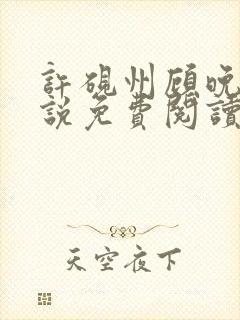 許硯州顧晚
說免費閱讀
天空夜下